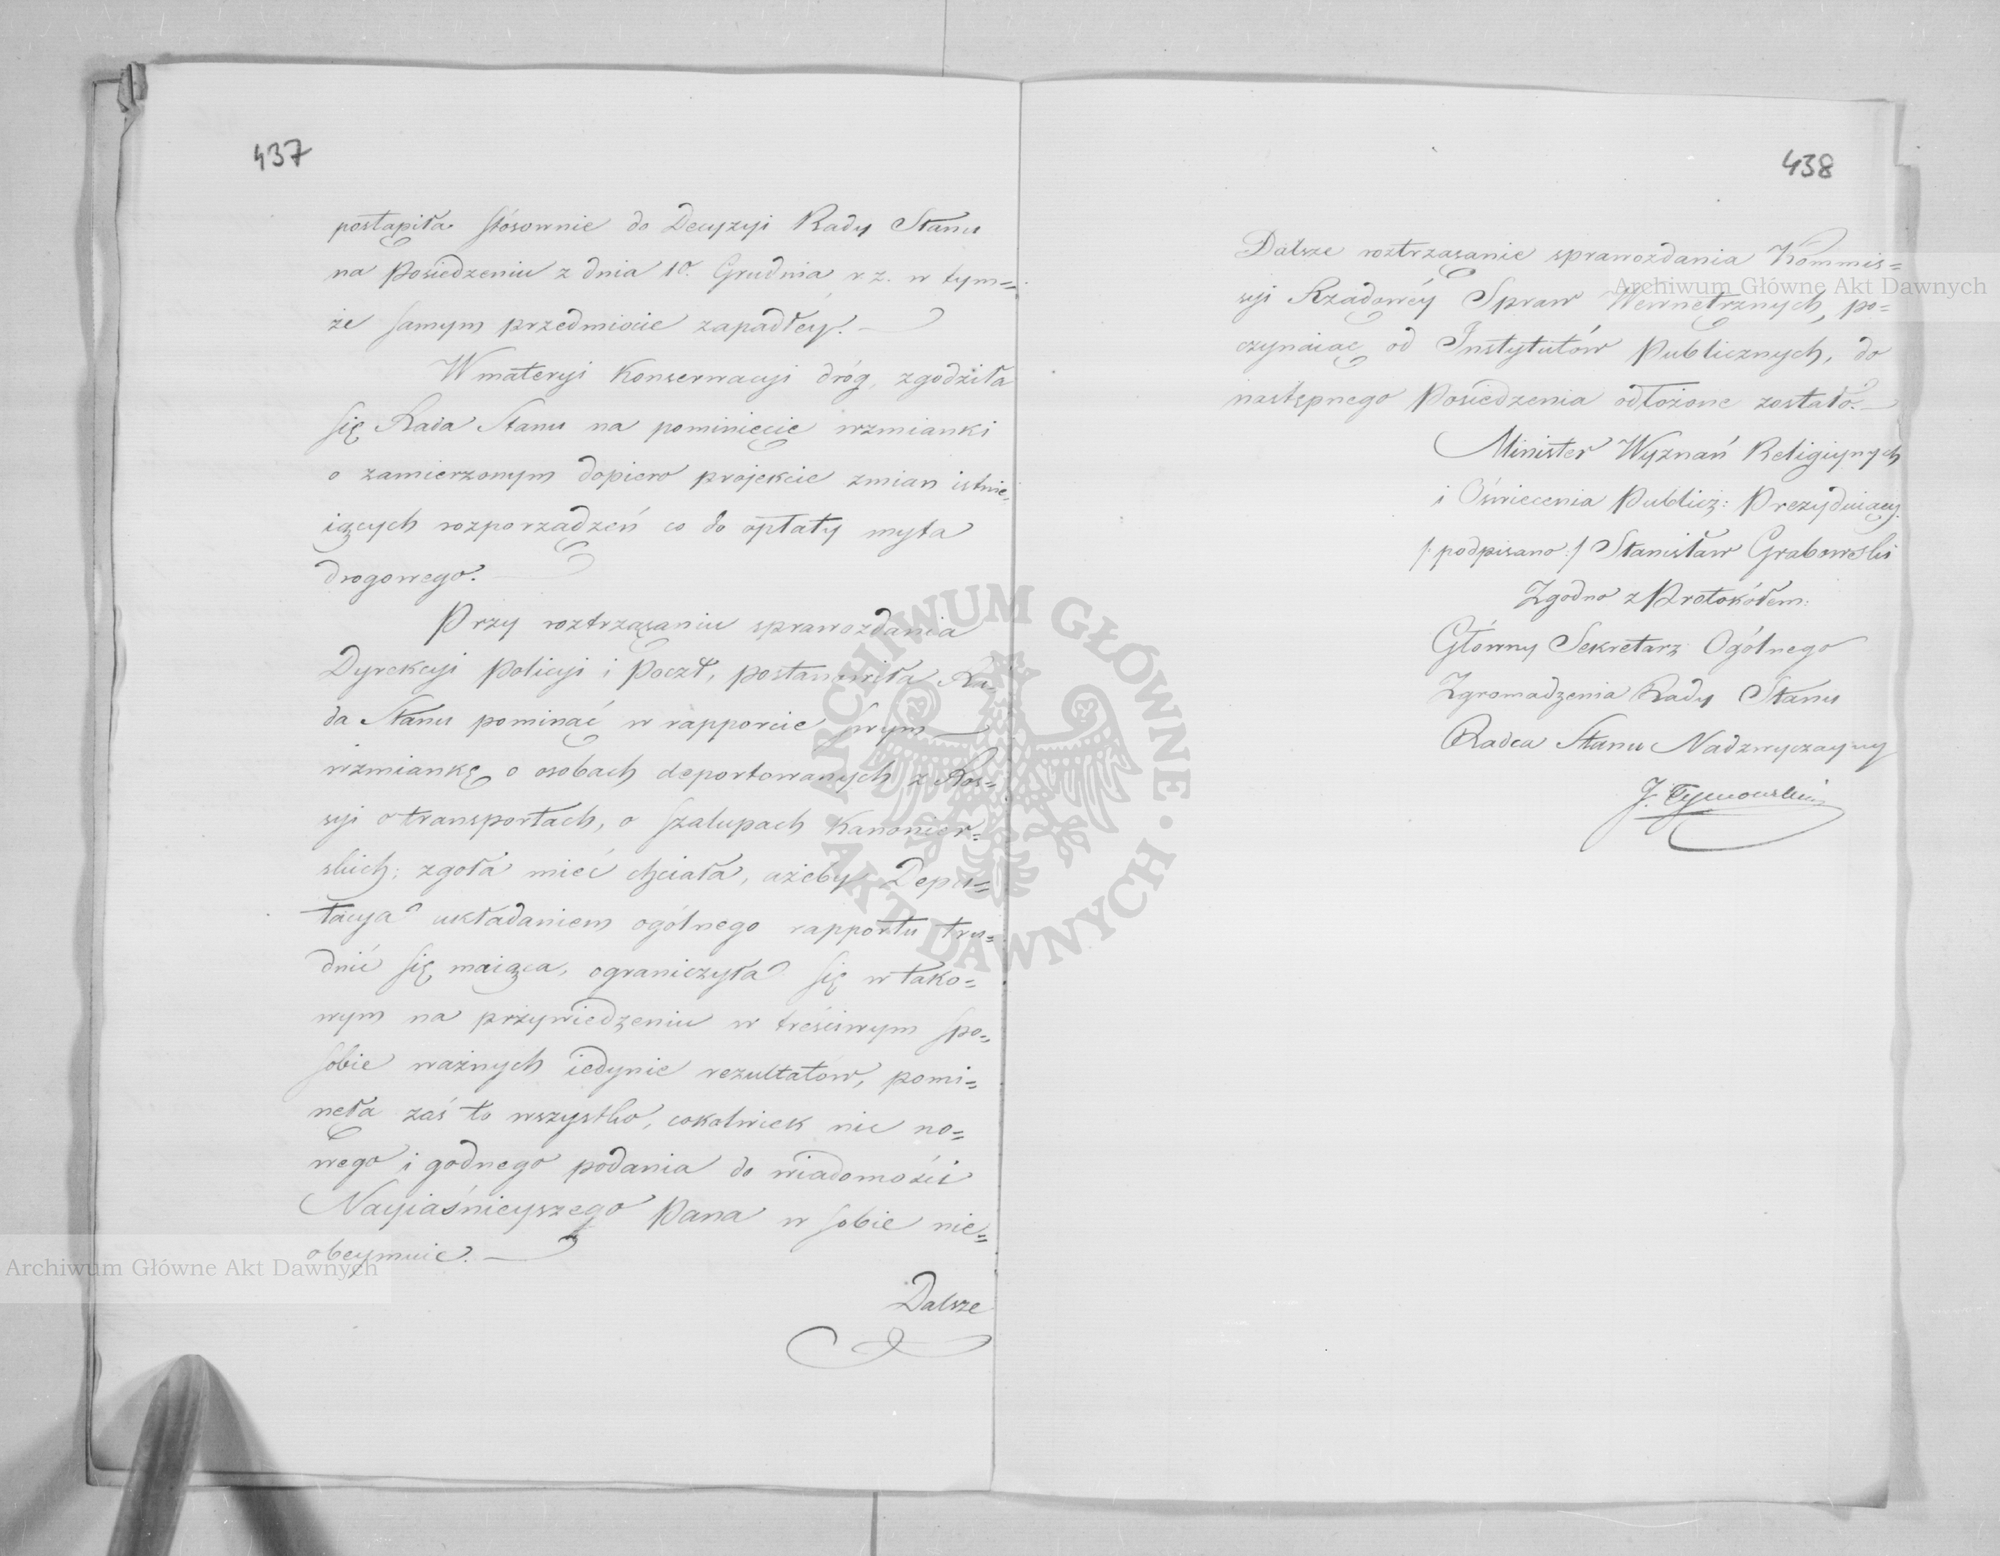 437
postąpiła stósownie do Decyzyi Rady Stanu
na Posiedzeniu z dnia 10. Grudnia r. z. w tym=
że samym przedmiocie zapadłéy.
W materyi Konserwacyi dróg, zgodziła
się Rada Stanu na pominięcie wzmianki
o zamierzonym dopiero projekcie zmian istnie=
iących rozporządzeń co do opłaty myta
drogowego.
Przy roztrząsaniu sprawozdania
Dyrekcyi Policyi i Poczt, postanowiła Ra=
da Stanu pominąć w rapporcie swym
wzmiankę o osobach deportowanych z Ros=
syi o transportach, o szalupach Kanonier=
skich; zgoła mieć chciała, ażeby Depu=
tacya układaniem ogólnego rapportu tru=
dnić się maiąca, ograniczyła się w tako=
wym na przywiedzeniu w treściwym spo=
sobie ważnych iedynie rezultatów, pomi=
nęła zaś to wszystko, cokolwiek nic no=
wego i godnego podania do wiadomości
Nayiaśnieyszego Pana w sobie nie=
obeymuie.
Dalsze
438
Dalsze roztrząsanie sprawozdania Kommis=
syi Rządowéy Spraw Wewnętrznych, po=
czynaiąc od Instytutów Publicznych, do
następnego Posiedzenia odłożone zostało.
Minister Wyznań Religiynych
i Oświecenia Publicz: Prezyduiący.
/: podpisano :/ Stanisław Grabowski
Zgodno z Protokółem:
Główny Sekretarz Ogólnego
Zgromadzenia Rady Stanu
Radca Stanu Nadzwyczayny
J. Tymowski
Archiwum Główne Akt Dawnych
Archiwum Główne Akt Dawnych
ARCHIWUM GŁÓWNE · AKT DAWNYCH ·